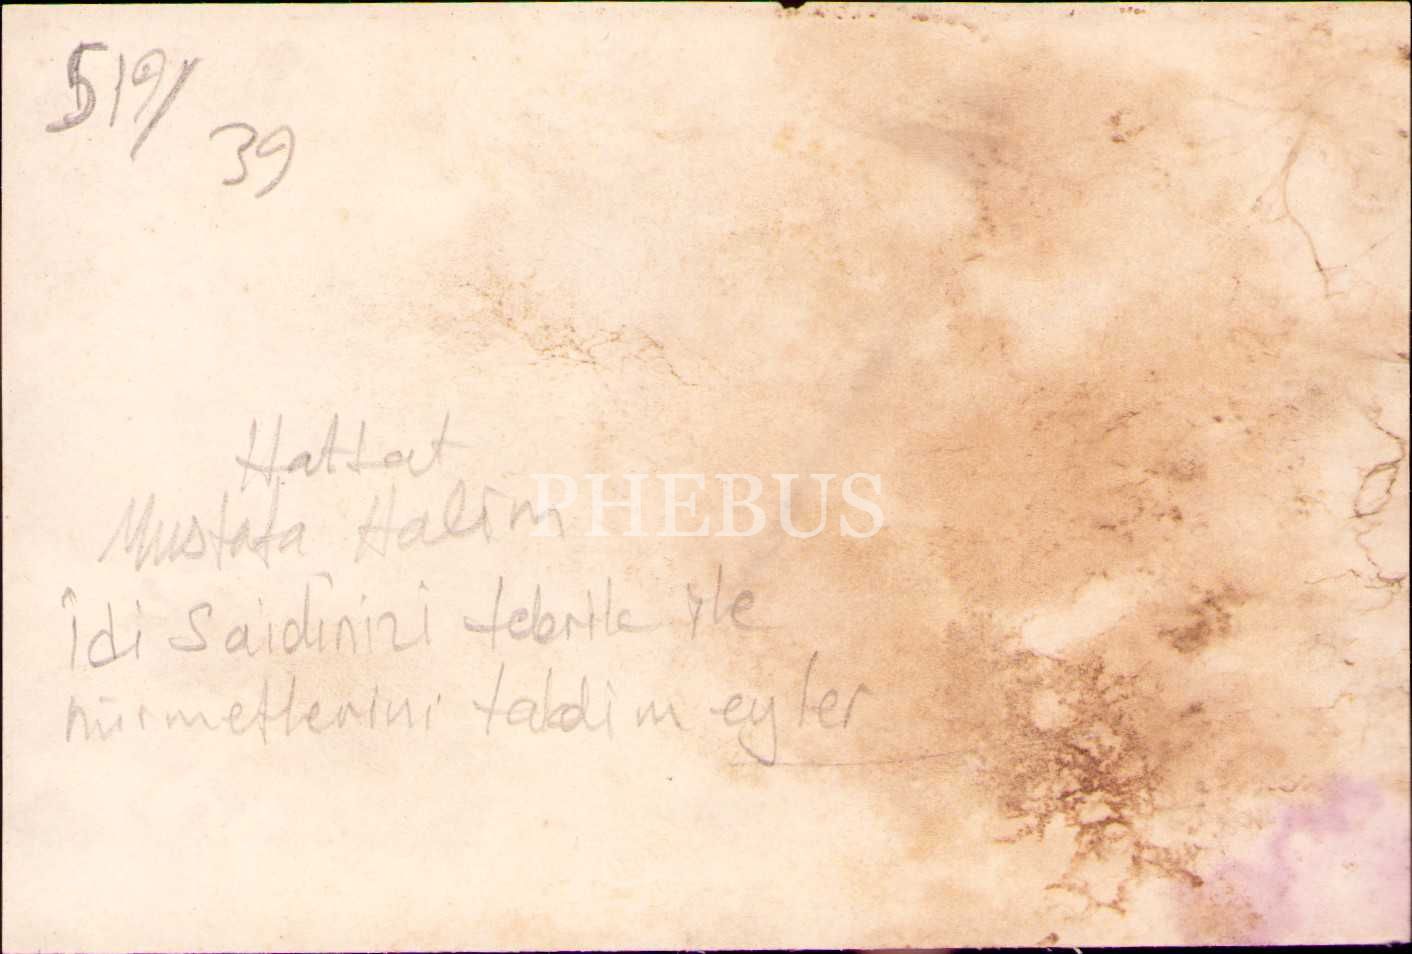 519/
39
Hattat
Mustafa Halim
PHEBUS
İdi Saidinizi tebrik ile
hürmetlerini takdim eyler